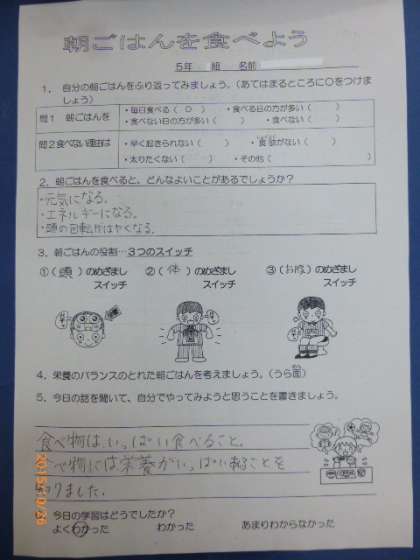 朝ごはんを食べよう
5年 組 名前
1. 自分の朝ごはんをふり返ってみましょう。(あてはまるところに○をつけま
しょう)
問1 朝ごはんを ・毎日食べる( ○ ) ・食べる日の方が多い( )
・食べない日の方が多い( ) ・食べない( )
問2食べない理由は ・早く起きられない( ) ・食欲がない( )
・太りたくない( ) ・その他( )
2. 朝ごはんを食べると、どんなよいことがあるでしょうか?
・元気になる。
・エネルギーになる。
・頭の回転がはやくなる。
3. 朝ごはんの役割…3つのスイッチ
①(頭)のめざまし ②(体)のめざまし ③(おなか)のめざまし
スイッチ スイッチ スイッチ
4. 栄養のバランスのとれた朝ごはんを考えましょう。(うら面)
5. 今日の話を聞いて、自分でやってみようと思うことを書きましょう。
食べ物はいっぱい食べること。
べ物には栄養がいっぱいあることを
りました.
今日の学習はどうでしたか?
よくわかった わかった あまりわからなかった
2015/10/26